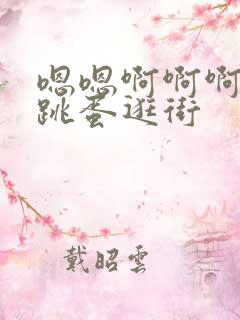 嗯嗯啊啊啊
跳蛋逛街
戴昭雲